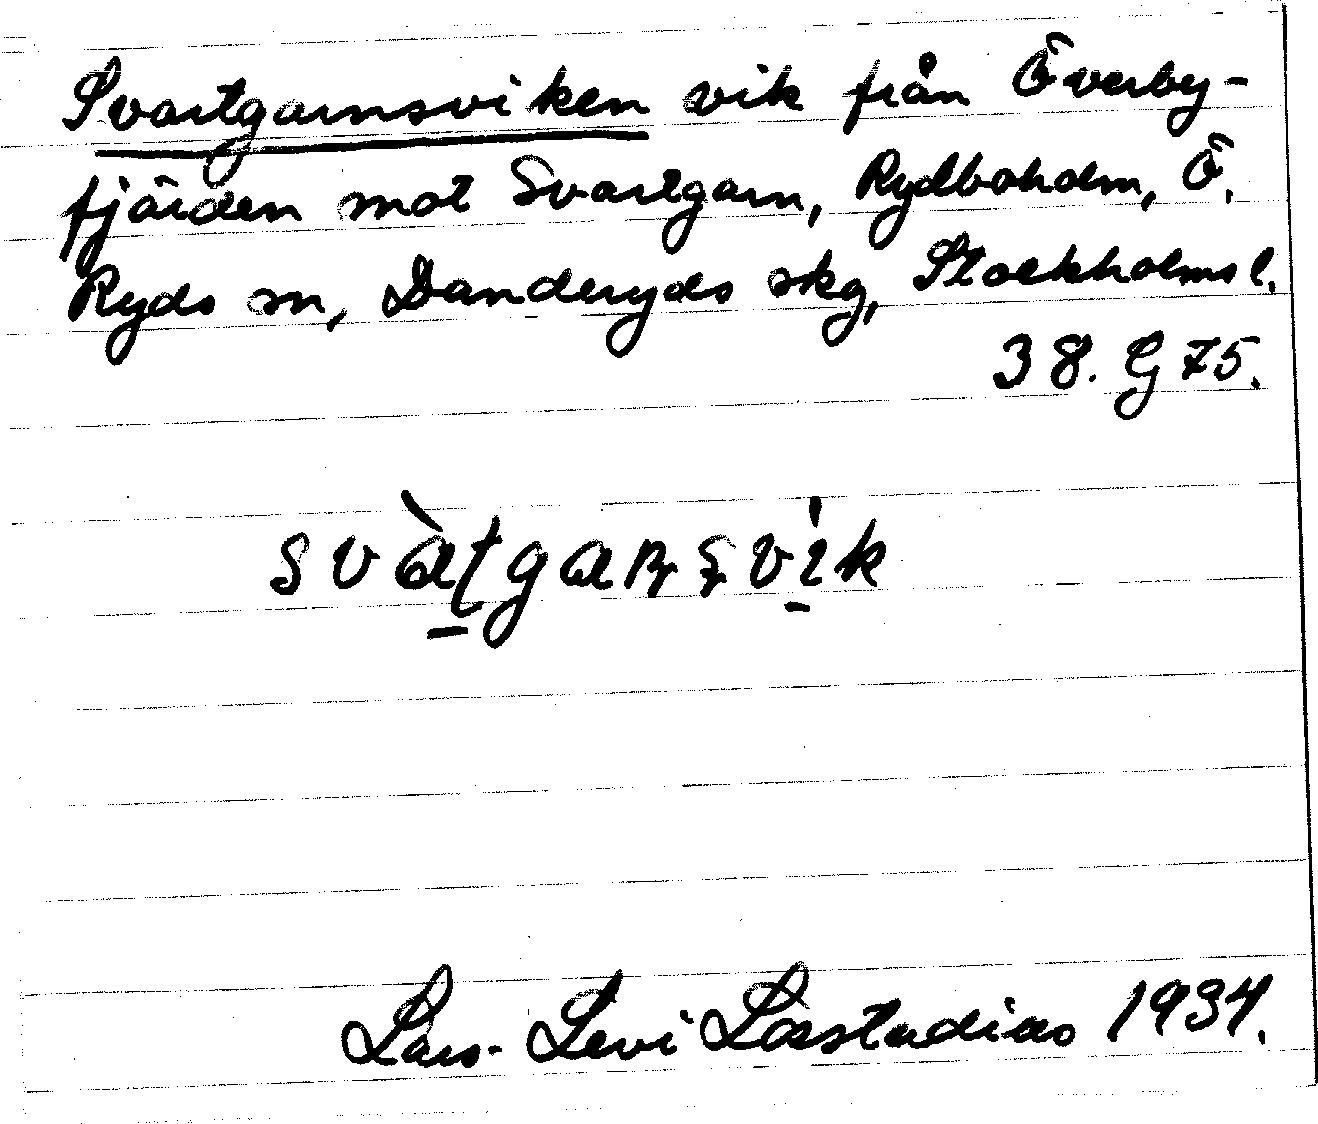 Svartgarnsviken vik från Överby-
fjärden mot Svartgarn, Rydboholm, Ö.
Ryds sn, Danderyds skg, Stockholms l.
38. G 75.
svàʈgaɳʂvi̍k
Lars-Levi Læstadius 1934.